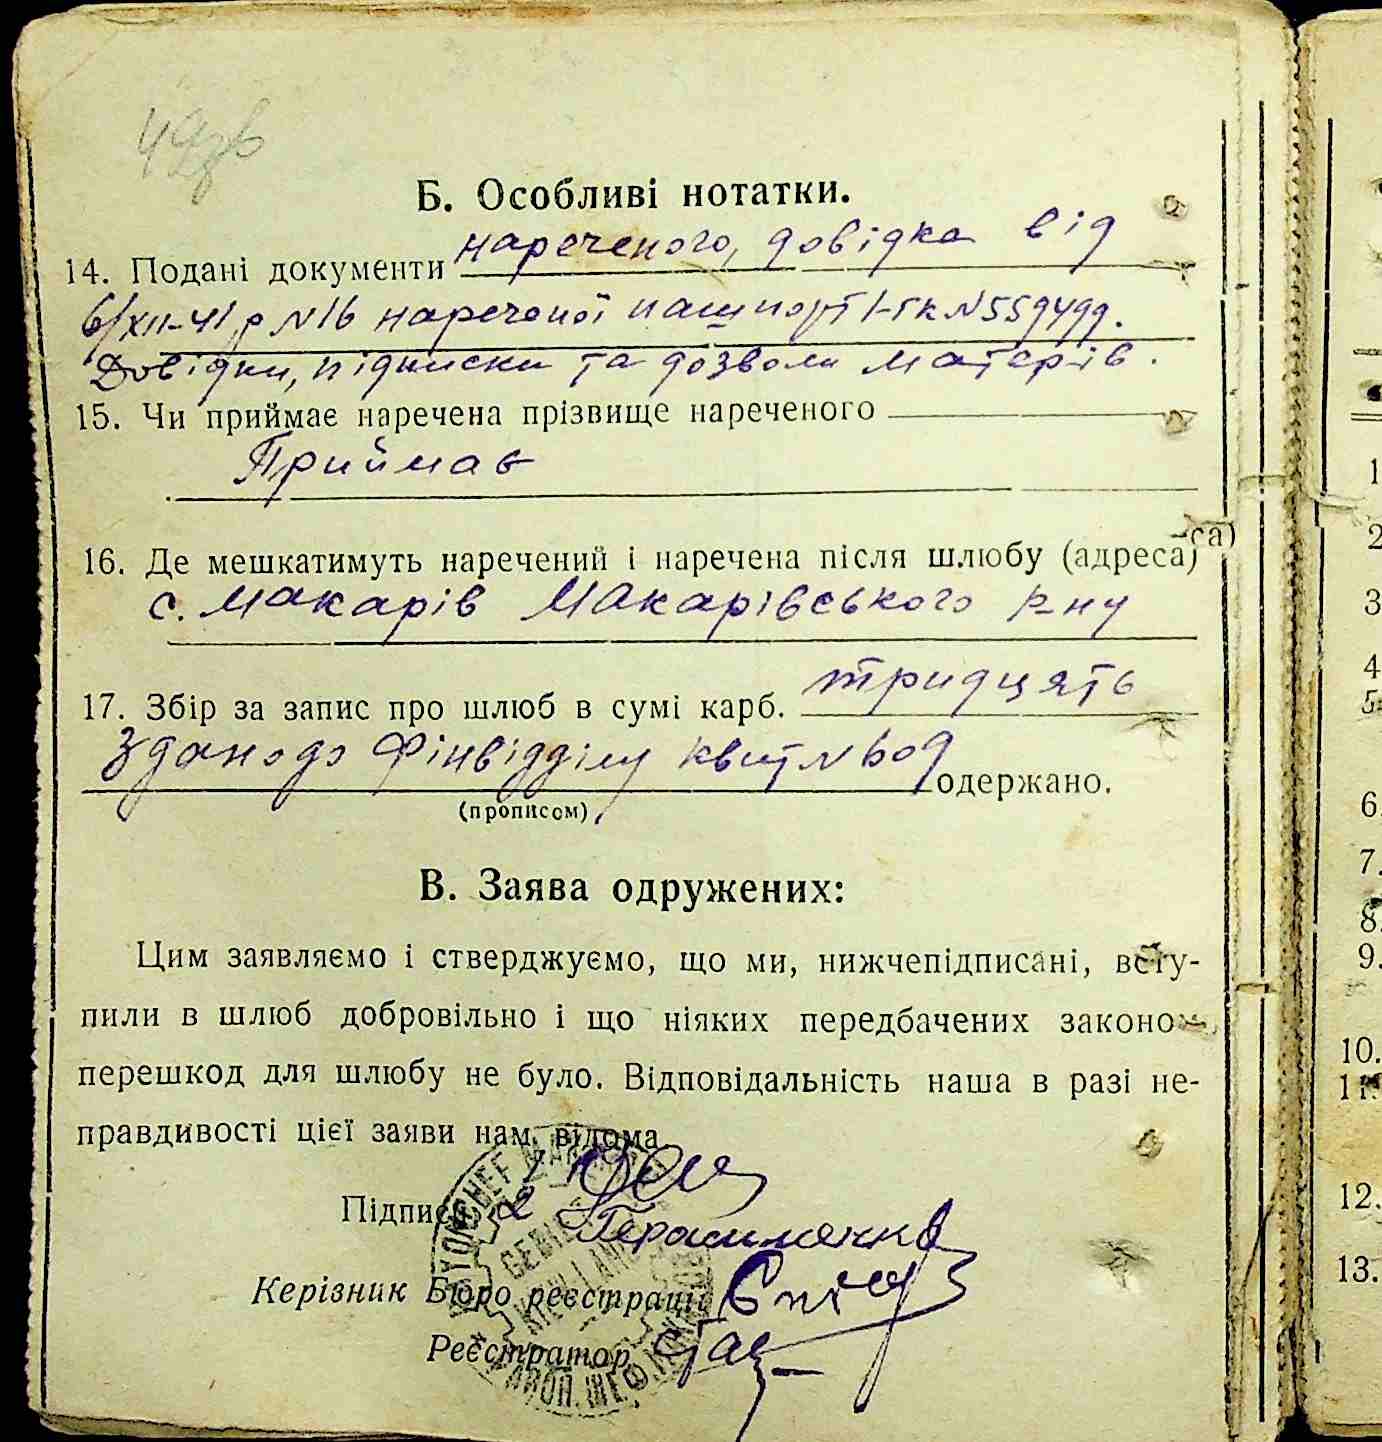 Б. Особливі нотатки.
14. Подані документи нареченого, довідка від
6/XII-41 р N16 нареченої пашпорт I-ТК N559499.
Довідки, підписки та дозволи матерів.
15. Чи приймає наречена прізвище нареченого
Приймає
16. Де мешкатимуть наречений і наречена після шлюбу (адреса)
са)
с. Макарів Макарівського р-ну
17. Збір за запис про шлюб в сумі карб. тридцять
Здано до Фінвідділу квит N 609 одержано.
(прописом)
В. Заява одружених:
Цим заявляємо і стверджуємо, що ми, нижчепідписані, всту-
пили в шлюб добровільно і що ніяких передбачених законом
перешкод для шлюбу не було. Відповідальність наша в разі не-
правдивості цієї заяви нам відома
Підписи
Герасименко
Керівник Бюро реєстрації
Реєстратор
1
2
3
4
5
6.
7.
8.
9.
10.
11.
12.
13.